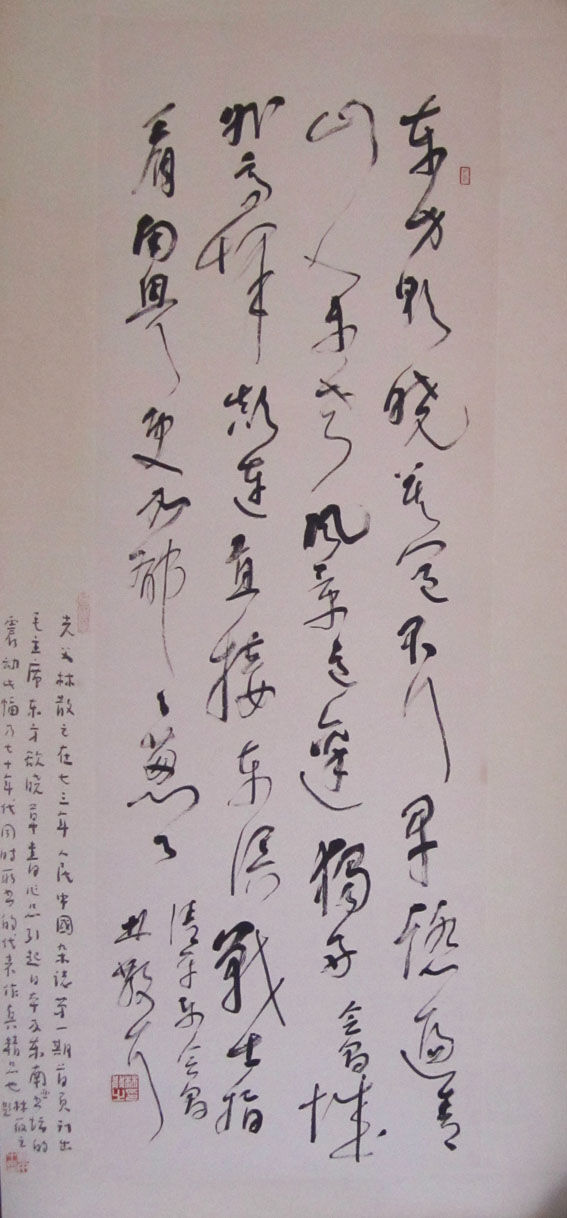 东方欲晓莫道君行早踏遍青
山人未老风景这边獨好会昌城
外高峰颠连直接东溟戰士指
看南粤更加郁々葱々
清平乐会昌
林散之
先父林散之在七三年人民中國杂誌第一期首页刊出
毛主席东方欲晓草书作品引起日本及东南亚书坛的
震动此幅乃七十年代同时所书的代表作真精品也 林筱之题